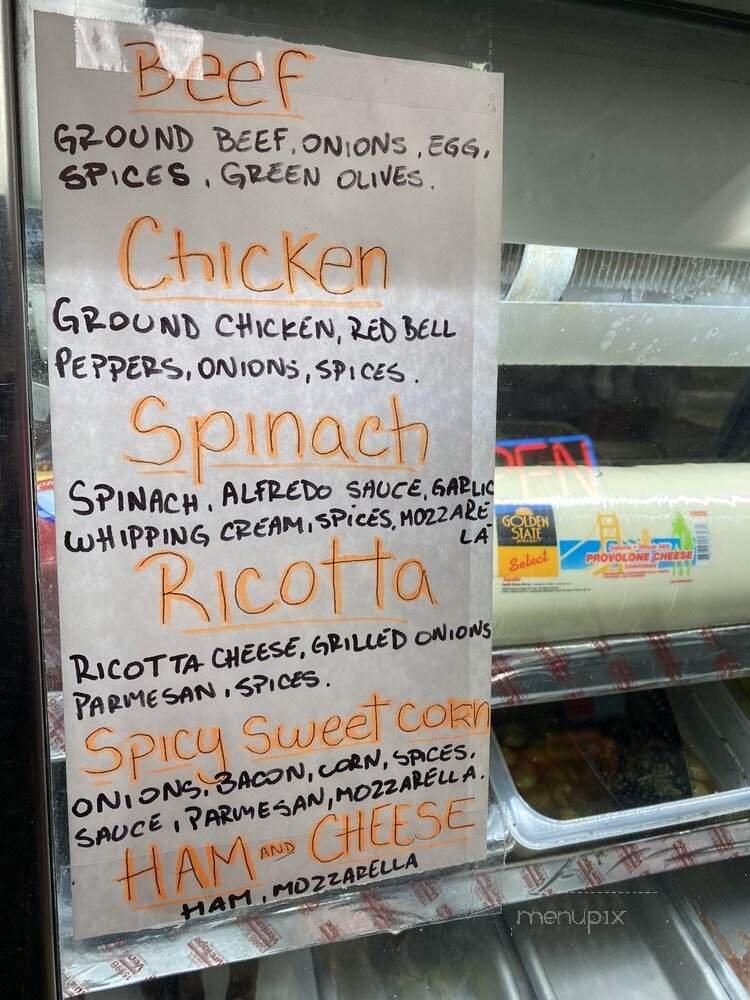 Beef
GROUND BEEF, ONIONS, EGG,
SPICES, GREEN OLIVES.
Chicken
GROUND CHICKEN, RED BELL
PEPPERS, ONIONS, SPICES.
Spinach
SPINACH, ALFREDO SAUCE, GARLIC
WHIPPING CREAM, SPICES, MOZZARE-
LA
Ricotta
RICOTTA CHEESE, GRILLED ONIONS
PARMESAN, SPICES.
Spicy Sweet CORN
ONIONS, BACON, CORN, SPICES,
SAUCE, PARMESAN, MOZZARELLA.
HAM AND CHEESE
HAM, MOZZARELLA
GOLDEN
STATE
Select
PROVOLONE CHEESE
menupix